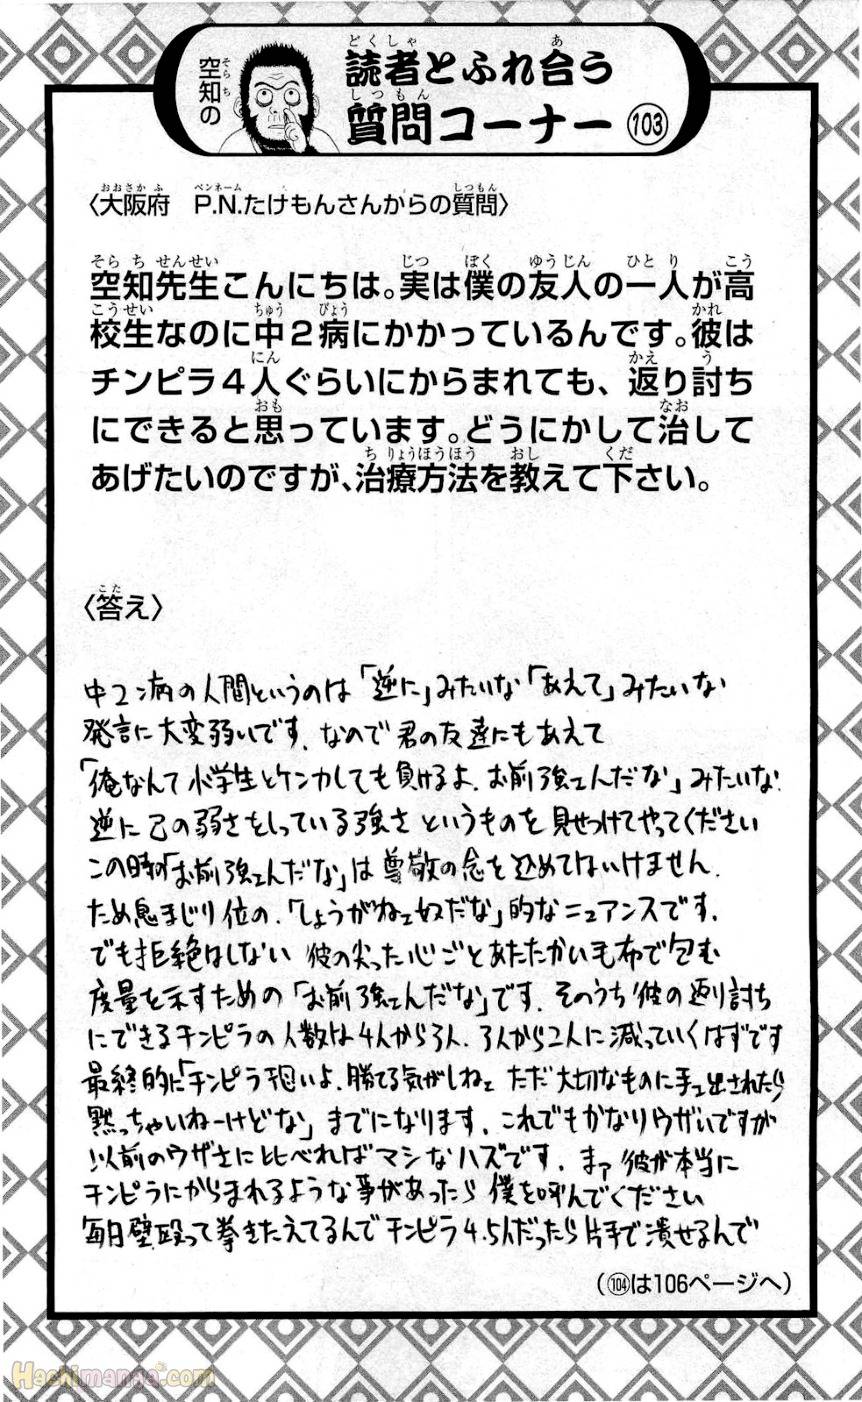 空知の
読者とふれ合う
質問コーナー 103
〈大阪府　P.N.たけもんさんからの質問〉
空知先生こんにちは。実は僕の友人の一人が高
校生なのに中２病にかかっているんです。彼は
チンピラ４人ぐらいにからまれても、返り討ち
にできると思っています。どうにかして治して
あげたいのですが、治療方法を教えて下さい。
〈答え〉
中二病の人間というのは「逆に」みたいな「あえて」みたいな
発言に大変弱いです。なので君の友達にもあえて
「俺なんて小学生とケンカしても負けるよ。お前強ェんだな」みたいな
逆に己の弱さをしっている強さというものを見せつけてやってください
この時の「お前強ェんだな」は尊敬の念を込めてはいけません。
ため息まじり位の、「しょうがねェ奴だな」的なニュアンスです。
でも拒絶はしない 彼の尖った心ごとあたたかい毛布で包む
度量を示すための「お前強ェんだな」です。そのうち彼の返り討ち
にできるチンピラの人数は4人から3人、3人から2人に減っていくはずです
最終的に「チンピラ怖いよ、勝てる気がしねェ ただ大切なものに手ェ出されたら
黙っちゃいねーけどな」までになります。これでもかなりウザいですが
以前のウザさに比べればマシなハズです。まァ彼が本当に
チンピラにからまれるような事があったら僕を呼んでください
毎日壁殴って拳きたえてるんでチンピラ4.5人だったら片手で潰せるんで
（104は106ページへ）
Hachimanga.com